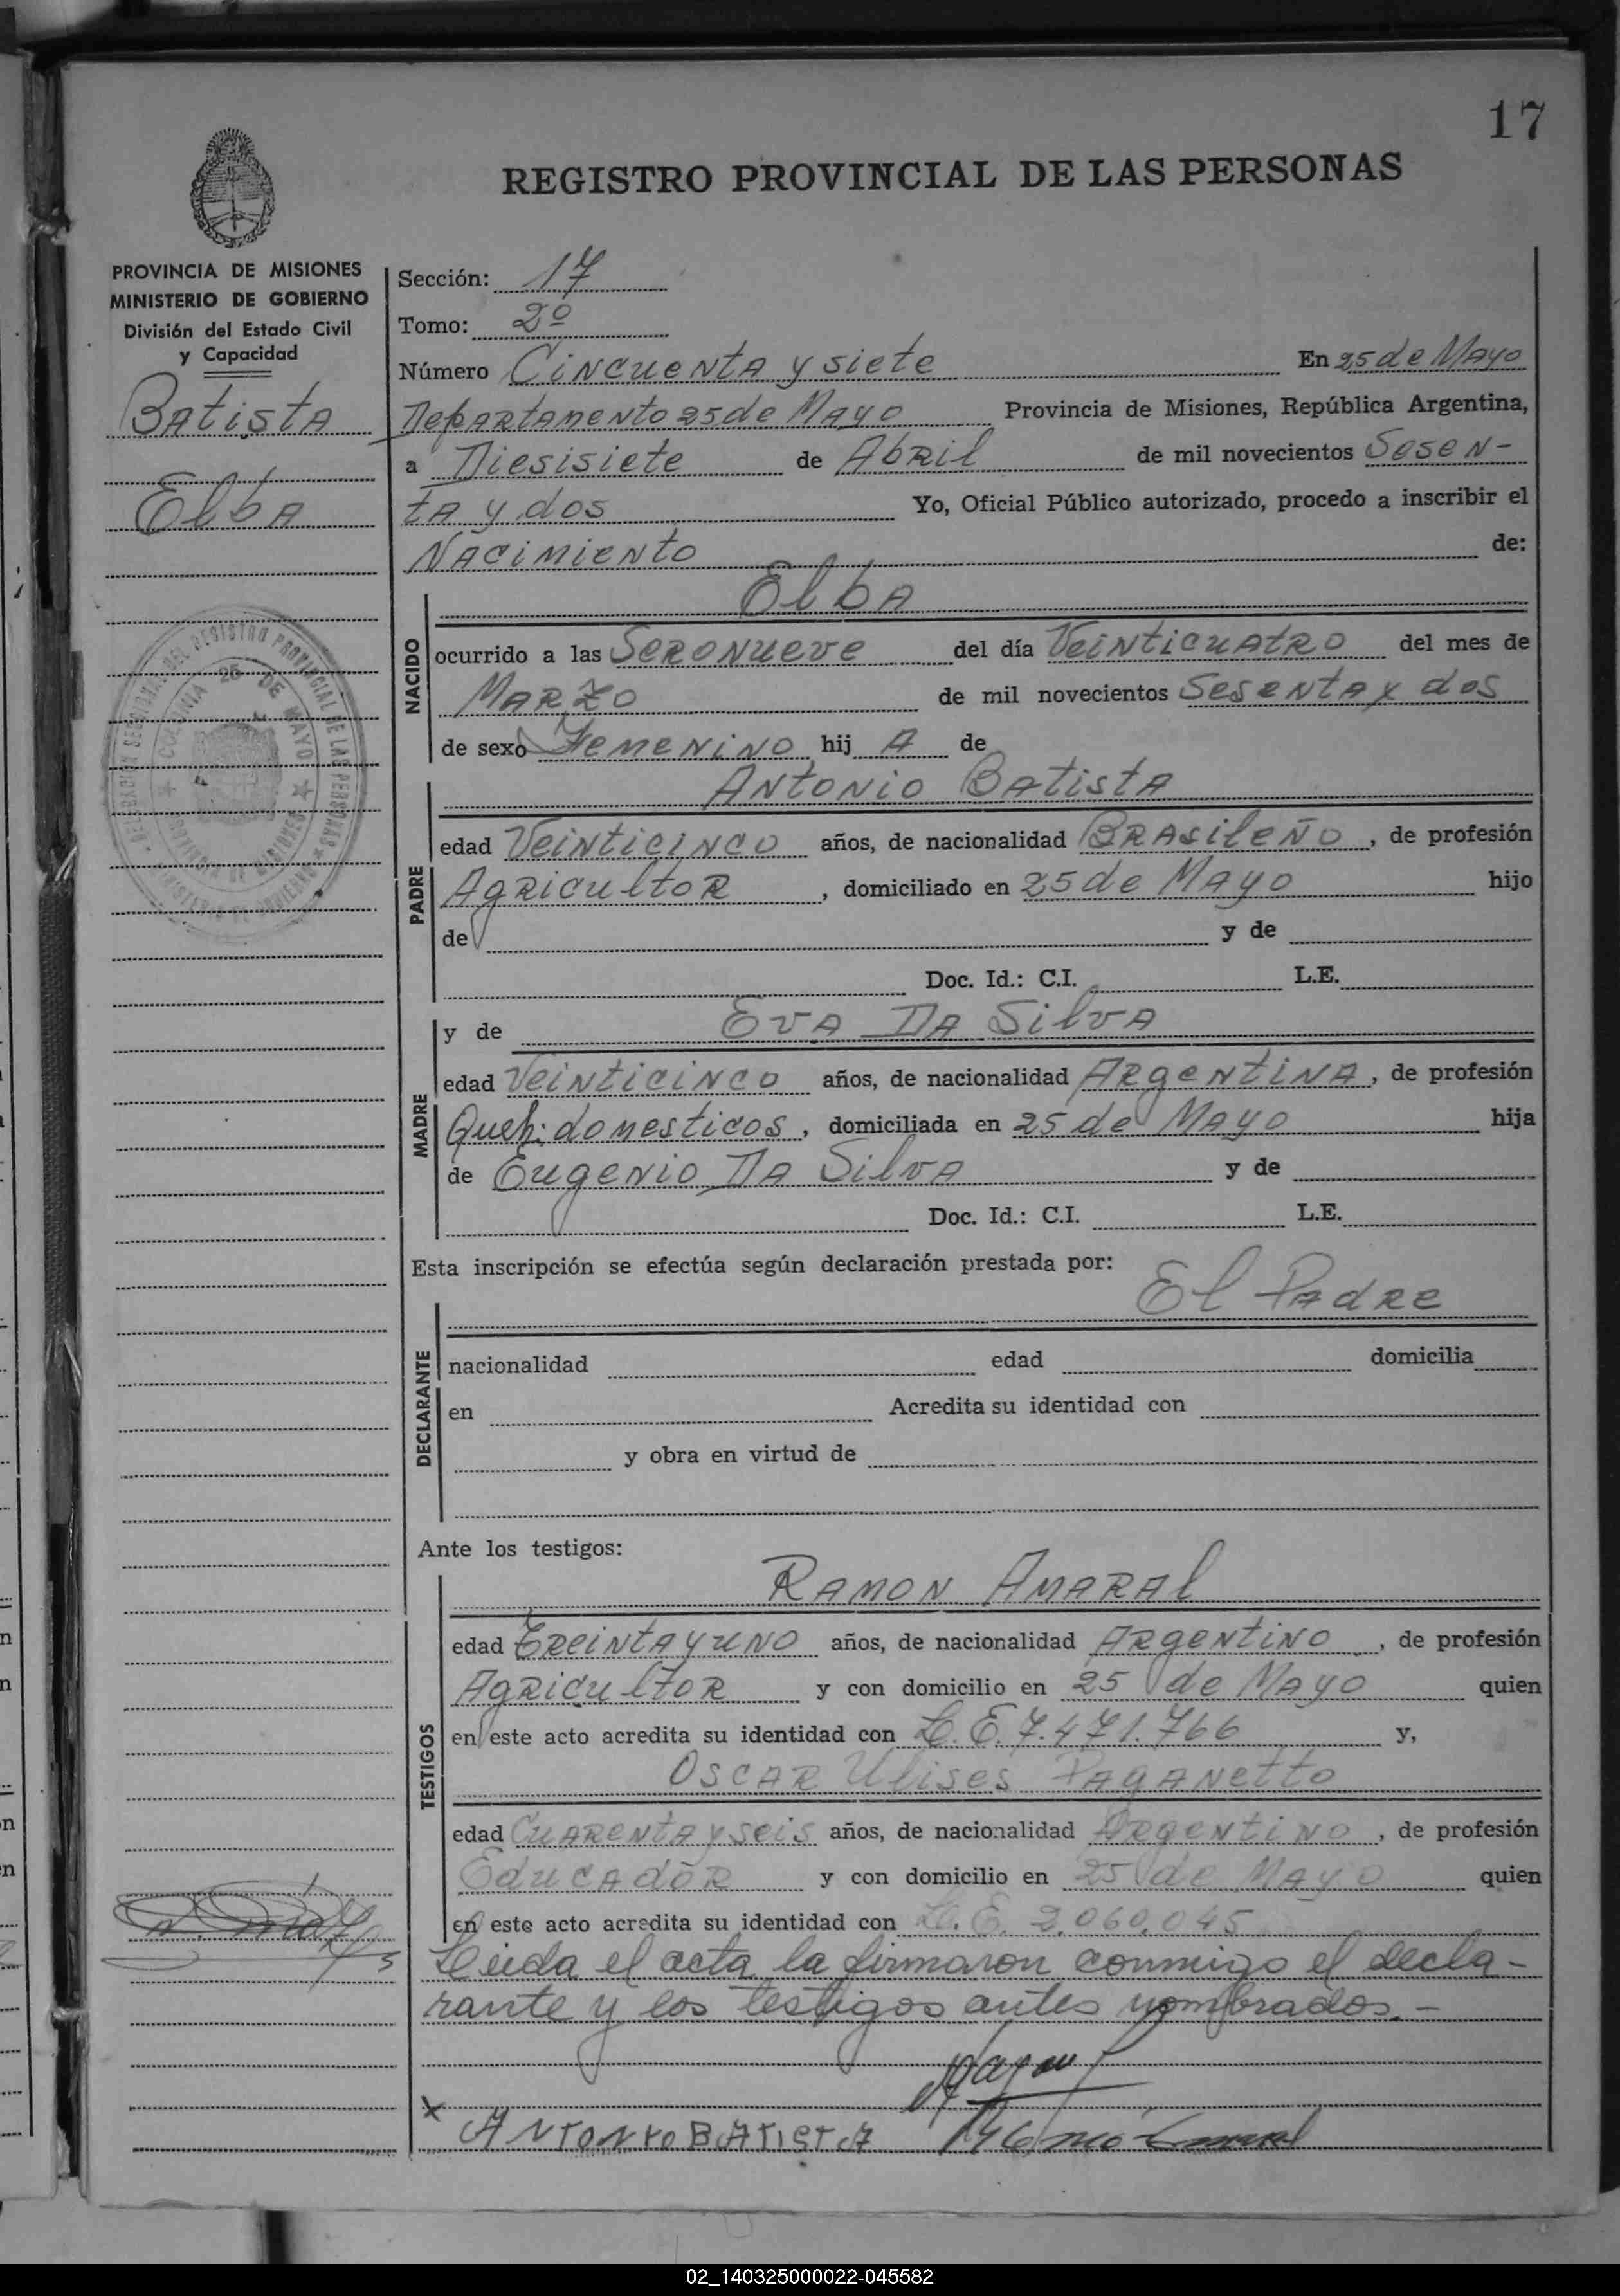 17
REGISTRO PROVINCIAL DE LAS PERSONAS
PROVINCIA DE MISIONES
MINISTERIO DE GOBIERNO
División del Estado Civil
y Capacidad
Batista
Elba
REGISTRO PROVINCIAL DE LAS PERSONAS
COLONIA 25 DE MAYO
PROVINCIA DE MISIONES
Sección: 17
Tomo: 2º
Número Cincuenta y siete En 25 de Mayo
Departamento 25 de Mayo Provincia de Misiones, República Argentina,
a Diesisiete de Abril de mil novecientos Sesen-
ta y dos Yo, Oficial Público autorizado, procedo a inscribir el
Nacimiento de:
Elba
NACIDO
ocurrido a las Seronueve del día Veinticuatro del mes de
Marzo de mil novecientos Sesenta y dos
de sexo Femenino hij A de
Antonio Batista
PADRE
edad Veinticinco años, de nacionalidad Brasileño, de profesión
Agricultor, domiciliado en 25 de Mayo hijo
de y de
Doc. Id.: C.I. L.E.
y de Eva Da Silva
MADRE
edad Veinticinco años, de nacionalidad Argentina, de profesión
Queh: domesticos, domiciliada en 25 de Mayo hija
de Eugenio Da Silva y de
Doc. Id.: C.I. L.E.
Esta inscripción se efectúa según declaración prestada por:
El Padre
DECLARANTE
nacionalidad edad domicilia
en Acredita su identidad con
y obra en virtud de
Ante los testigos:
Ramon Amaral
TESTIGOS
edad Treinta y uno años, de nacionalidad Argentino, de profesión
Agricultor y con domicilio en 25 de Mayo quien
en este acto acredita su identidad con L.E. 7.471.766 y,
Oscar Ulises Paganetto
edad Cuarenta y seis años, de nacionalidad Argentino, de profesión
Educador y con domicilio en 25 de Mayo quien
en este acto acredita su identidad con L.E. 2.060.045
Leida el acta la firmaron conmigo el decla-
rante y los testigos antes nombrados.-
x
ANTONYO BATISTA
02_140325000022-045582